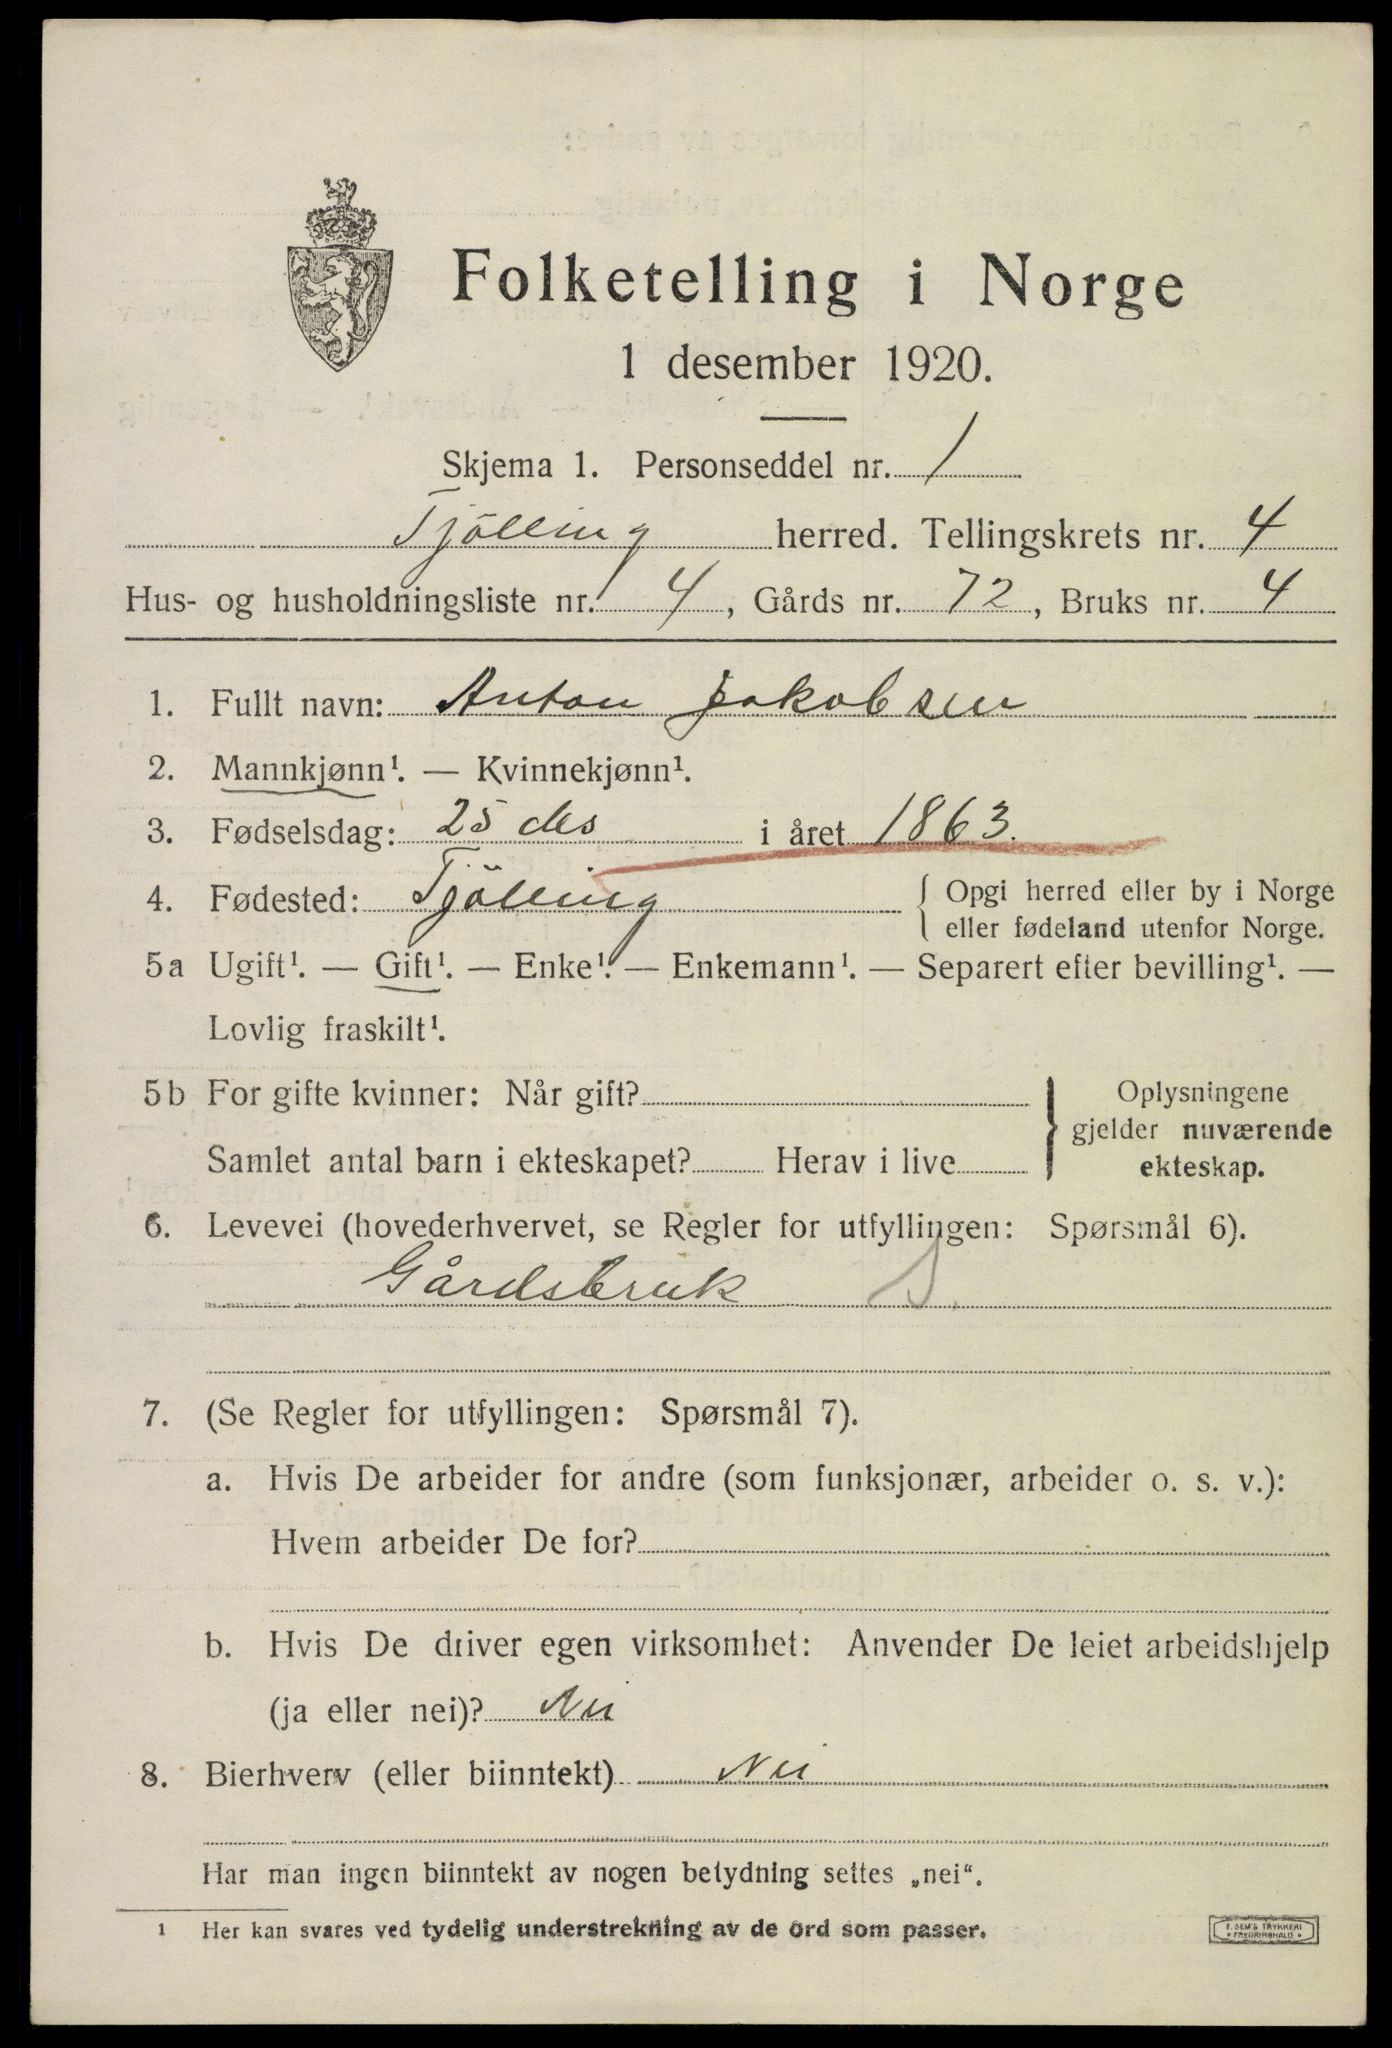 Folketelling i Norge
1 desember 1920.
Skjema 1. Personseddel nr. 1
Tjölling herred. Tellingskrets nr. 4
Hus- og husholdningsliste nr. 4, Gårds nr. 72, Bruks nr. 4
1. Fullt navn: Anton Jakobsen
2. Mannkjønn¹. — Kvinnekjønn¹.
3. Fødselsdag: 25 des i året 1863.
4. Fødested: Tjölling { Opgi herred eller by i Norge
eller fødeland utenfor Norge.
5a Ugift¹. — Gift¹. — Enke¹. — Enkemann¹. — Separert efter bevilling¹. —
Lovlig fraskilt¹.
5b For gifte kvinner: Når gift?
Samlet antal barn i ekteskapet? Herav i live
} Oplysningene
gjelder nuværende
ekteskap.
6. Levevei (hovederhvervet, se Regler for utfyllingen: Spørsmål 6).
Gårdsbruk S.
7. (Se Regler for utfyllingen: Spørsmål 7).
a. Hvis De arbeider for andre (som funksjonær, arbeider o. s. v.):
Hvem arbeider De for?
b. Hvis De driver egen virksomhet: Anvender De leiet arbeidshjelp
(ja eller nei)? Nei
8. Bierhverv (eller biinntekt) Nei
Har man ingen biinntekt av nogen betydning settes „nei“.
¹ Her kan svares ved tydelig understrekning av de ord som passer.
E. SEM'S TRYKKERI
FREDRIKSHALD